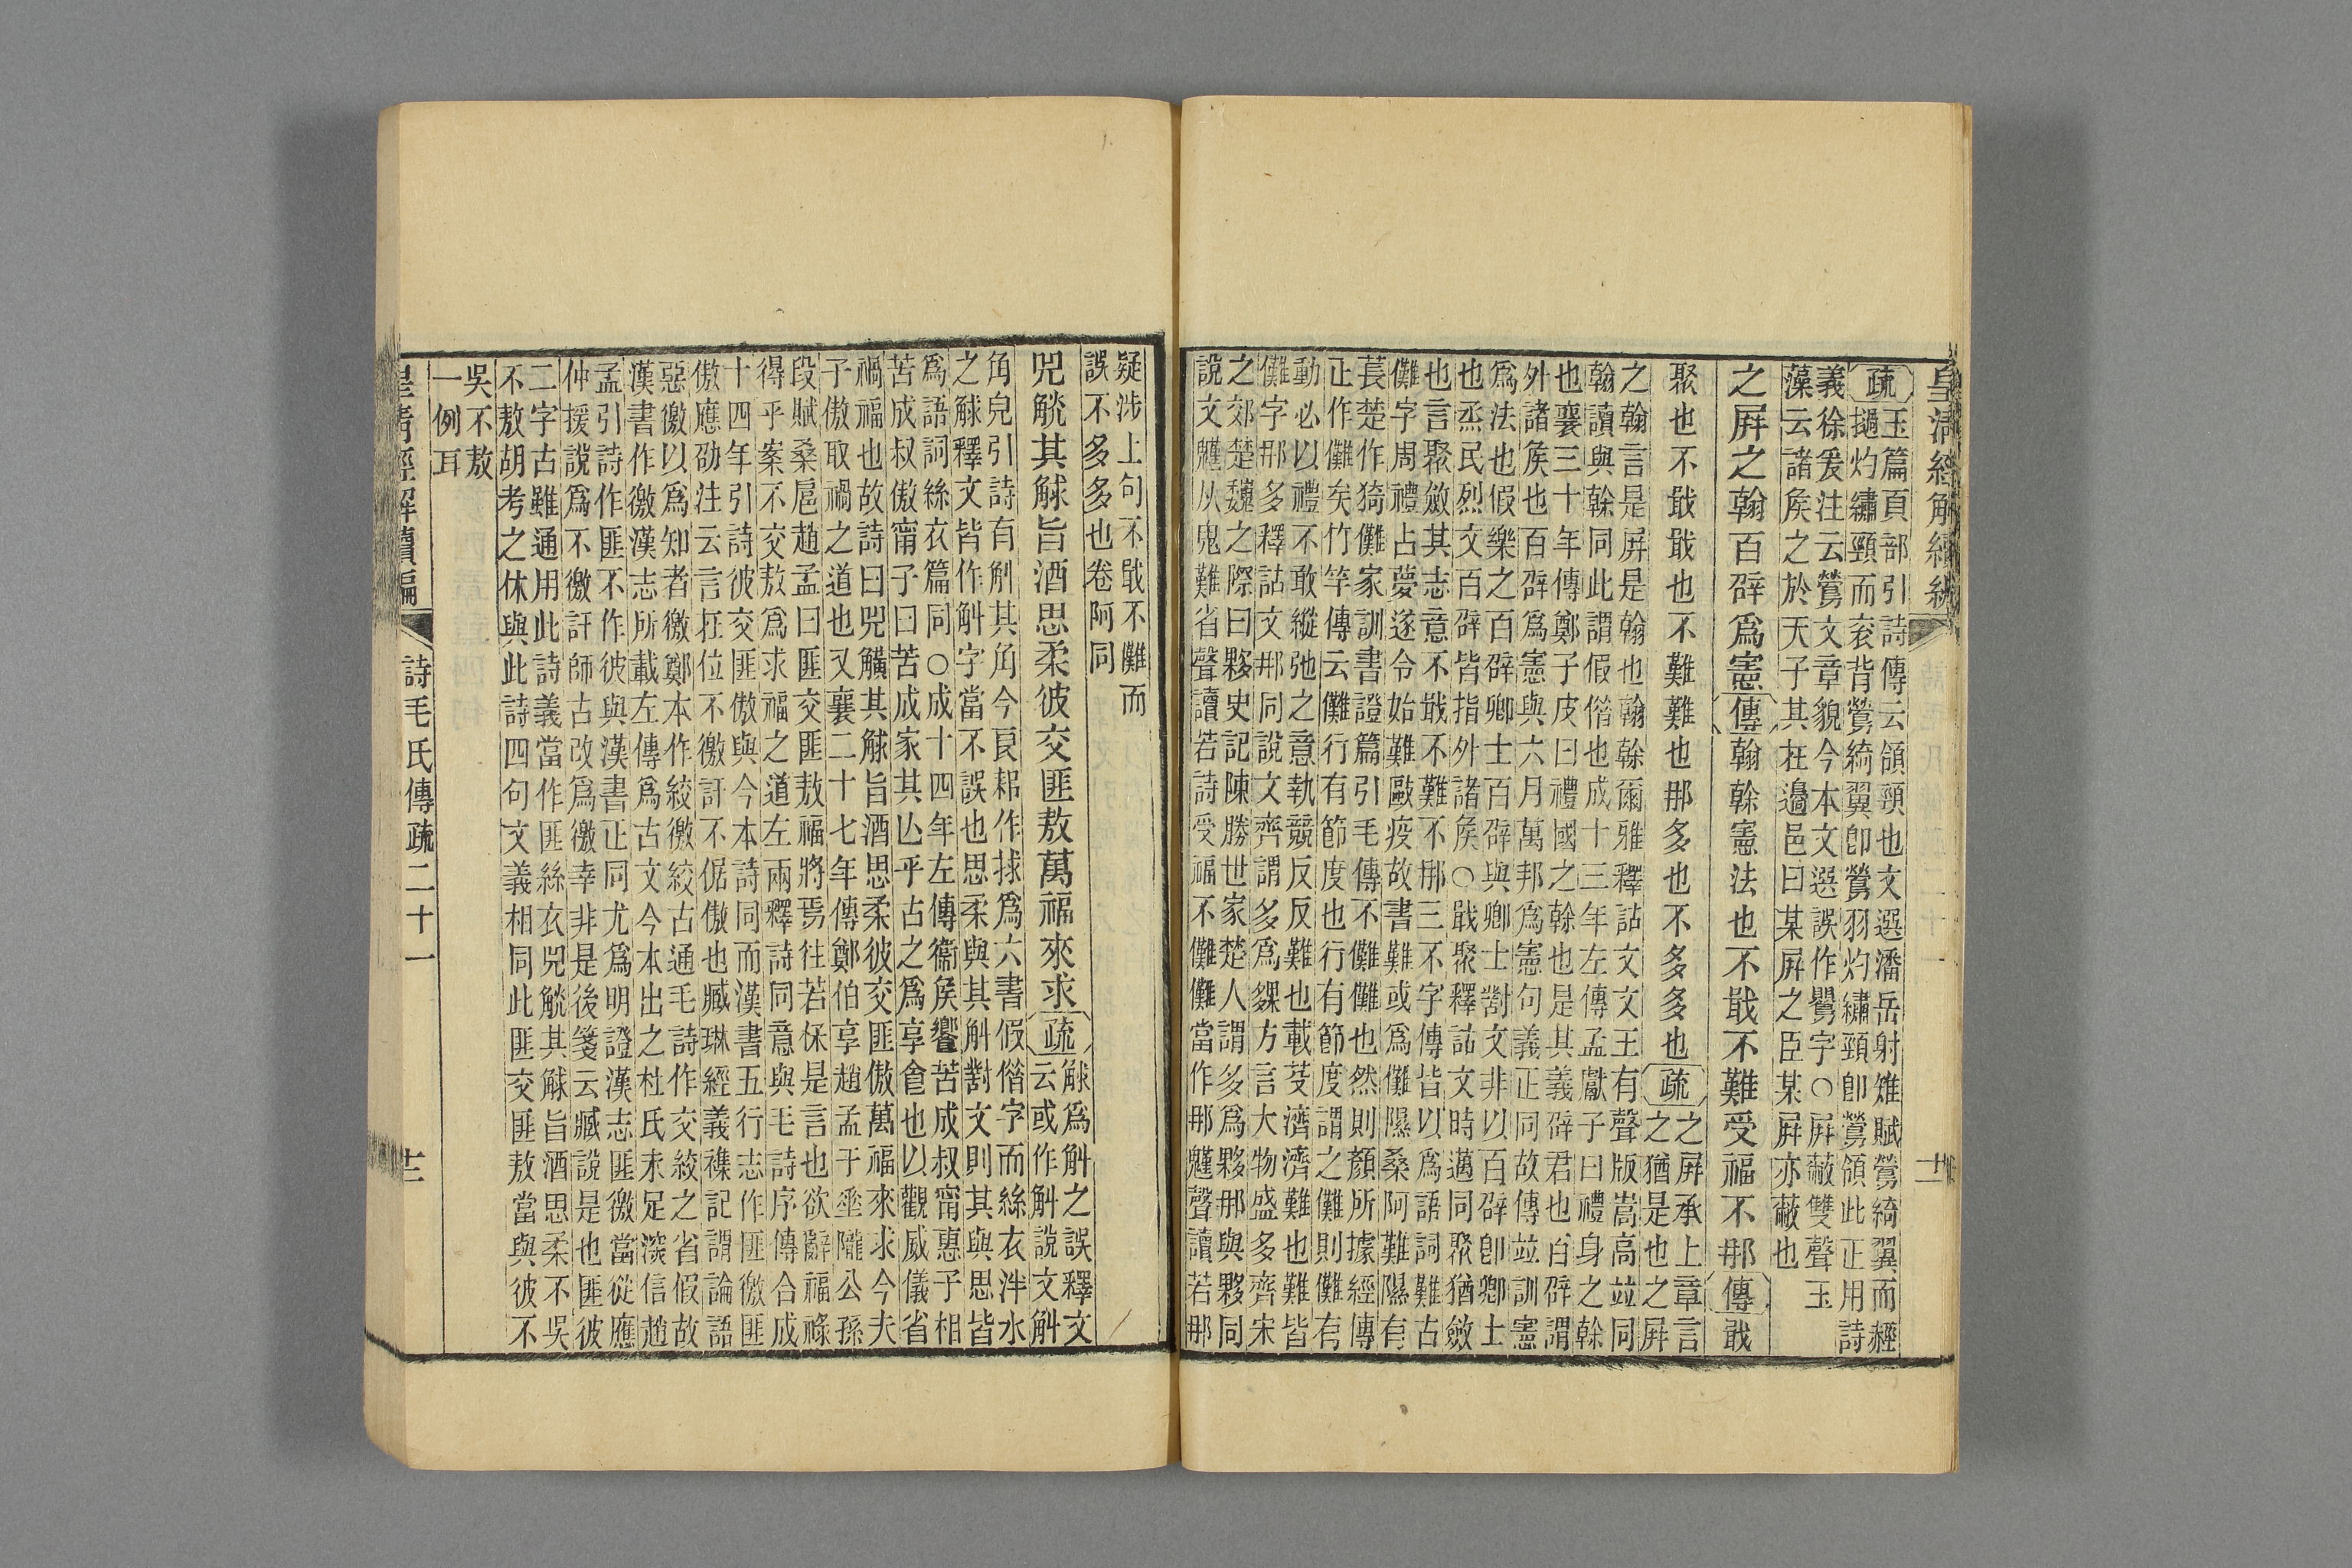 皇清經解續編
疏玉篇頁部引詩傳云領頸也文選潘岳射雉賦鶯綺翼而赬
撾灼繡頸而衮背鶯綺翼卽鶯羽灼繡頸卽鶯領此正用詩
義徐爰注云鶯文章貌今本文選誤作鸎字○屏蔽雙聲玉
藻云諸矦之於天子其在邊邑曰某屏之臣某屏亦蔽也
之屛之翰百辟爲憲傳翰榦憲法也不戢不難受福不那傳戢
聚也不戢戢也不難難也那多也不多多也疏之屏承上章言
之猶是也之屏
之翰言是屏是翰也翰榦爾雅釋詁文文王有聲版嵩高竝同
翰讀與榦同此謂假借也成十三年左傳孟獻子曰禮身之榦
也襄三十年傳鄭子皮曰禮國之榦也是其義辟君也百辟謂
外諸矦也百辟爲憲與六月萬邦爲憲句義正同故傳竝訓憲
爲法也假樂之百辟卿士百辟與卿士對文非以百辟卽卿士
也烝民烈文百辟皆指外諸矦○戢聚釋詁文時邁同聚猶斂
也言聚斂其志意不戢不難不那三不字傳皆以爲語詞難古
儺字周禮占夢遂令始難毆疫故書難或爲儺隰桑阿難隰有
萇楚作猗儺家訓書證篇引毛傳不儺儺也然則顏所據經傳
正作儺矣竹竿傳云儺行有節度也行有節度謂之儺則儺有
動必以禮不敢縱弛之意執競反反難也載芟濟濟難也難皆
儺字那多釋詁文那同說文齊謂多爲夥方言大物盛多齊宋
之郊楚魏之際曰夥史記陳勝世家楚人謂多爲夥那與夥同
說文魋从鬼難省聲讀若詩受福不儺儺當作那魋聲讀若那
疑涉上句不戢不儺而
誤不多多也卷阿同
兕觥其觩旨酒思柔彼交匪敖萬福來求疏觩爲觓之誤釋文
云或作觓說文觓
角皃引詩有觓其角今良耜作捄爲六書假借字而絲衣泮水
之觩釋文皆作觓字當不誤也思柔與其觓對文則其與思皆
爲語詞絲衣篇同○成十四年左傳衞矦饗苦成叔甯惠子相
苦成叔傲甯子曰苦成家其亾乎古之爲享食也以觀威儀省
禍福也故詩曰兕觵其觩旨酒思柔彼交匪傲萬福來求今夫
子傲取禍之道也又襄二十七年傳鄭伯享趙孟于垂隴公孫
段賦桑扈趙孟曰匪交匪敖福將焉往若保是言也欲辭福祿
得乎案不交敖爲求福之道左兩釋詩同意與毛詩序傳合成
十四年引詩彼交匪傲與今本詩同而漢書五行志作匪徼匪
傲應劭注云言在位不徼訐不倨傲也臧琳經義襍記謂論語
惡徼以爲知者徼鄭本作絞徼絞古通毛詩作交絞之省假故
漢書作徼漢志所載左傳爲古文今本出之杜氏未足深信趙
孟引詩作匪不作彼與漢書正同尤爲明證漢志匪徼當從應
仲援說爲不徼訐師古改爲徼幸非是後箋云臧說是也匪彼
二字古雖通用此詩義當作匪絲衣兕觥其觩旨酒思柔不吳
不敖胡考之休與此詩四句文義相同此匪交匪敖當與彼不
吳不敖
一例耳
皇清經解續編 詩毛氏傳疏二十一 十二